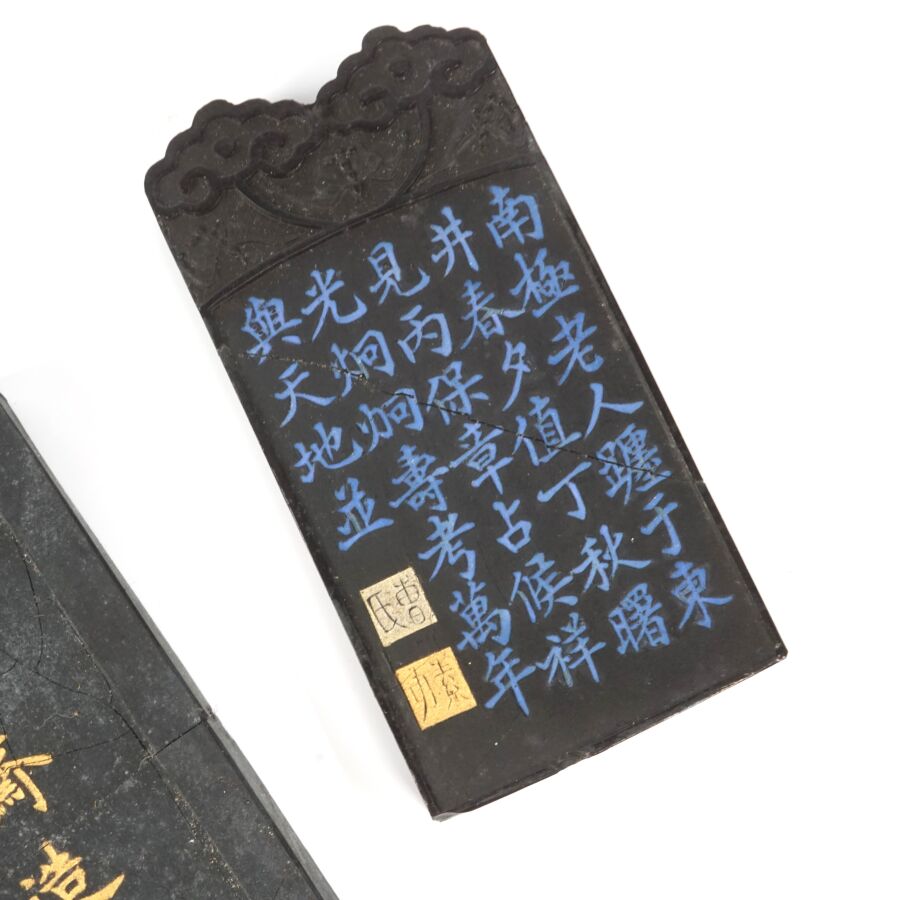 南極老人躔于東
井春夕值丁秋曙
見丙保章占候祥
光炯炯壽考萬年
與天地並
曹氏
素功
造